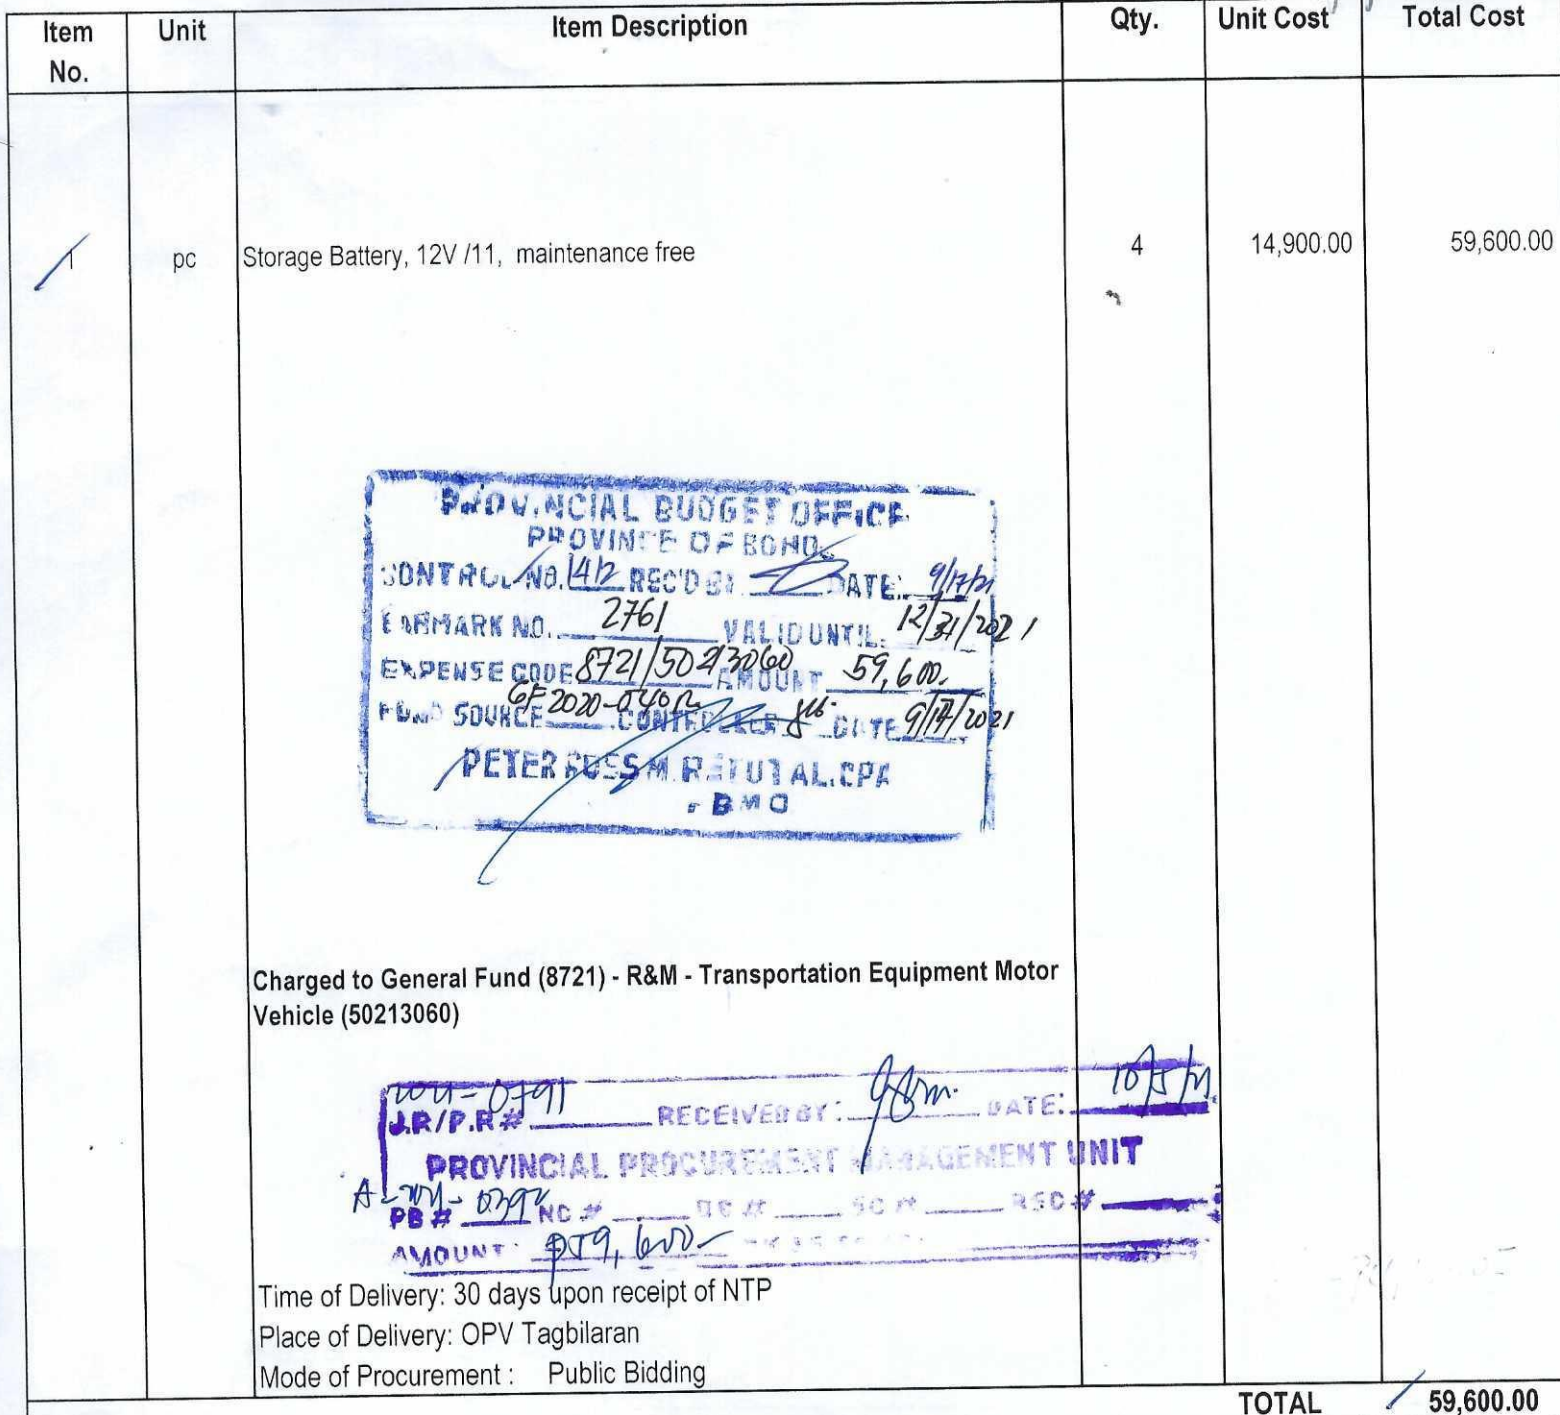 Item No. Unit Item Description Qty. Unit Cost Total Cost
1 pc Storage Battery, 12V /11, maintenance free 4 14,900.00 59,600.00
PROVINCIAL BUDGET OFFICE
PROVINCE OF BOHOL
CONTROL NO. 1412 REC'D BY DATE: 9/17/21
EARMARK NO. 2761 VALID UNTIL: 12/31/2021
EXPENSE CODE 8721/50213060 AMOUNT 59,600.
FUND SOURCE GF 2020- CONTROLLER DATE 9/17/2021
PETER ROSS M. RETUTAL, CPA
BMO
Charged to General Fund (8721) - R&M - Transportation Equipment Motor
Vehicle (50213060)
J.R/P.R # 2021-0791 RECEIVED BY: DATE: 10/5/21
PROVINCIAL PROCUREMENT MANAGEMENT UNIT
PB # NC # SC # RSC #
AMOUNT: ₱59,600-
Time of Delivery: 30 days upon receipt of NTP
Place of Delivery: OPV Tagbilaran
Mode of Procurement : Public Bidding
TOTAL 59,600.00